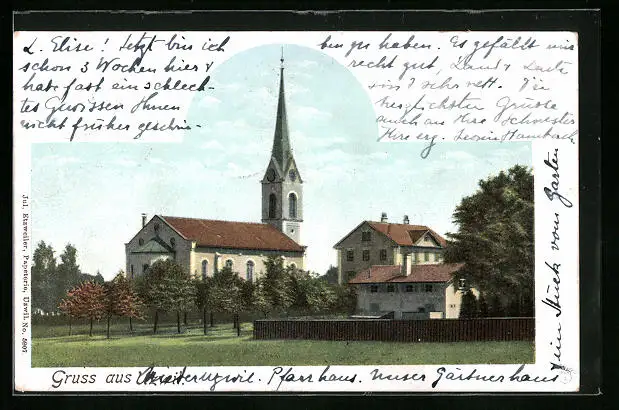 L. Elise! Jetzt bin ich
schon 3 Wochen hier &
hab fast ein schlech-
tes Gewissen Ihnen
nicht früher geschrie-
ben zu haben. Es gefällt mir
recht gut, Land & Leute
sind sehr nett. Die
herzlichsten Grüsse
auch an Ihre Schwester
Ihre erg.
Jul. Etzweiler, Papeterie, Uzwil. No. 5907
Gruss aus Niederuzwil. Pfarrhaus. Unser Gärtnerhaus
ein Stück vom Garten